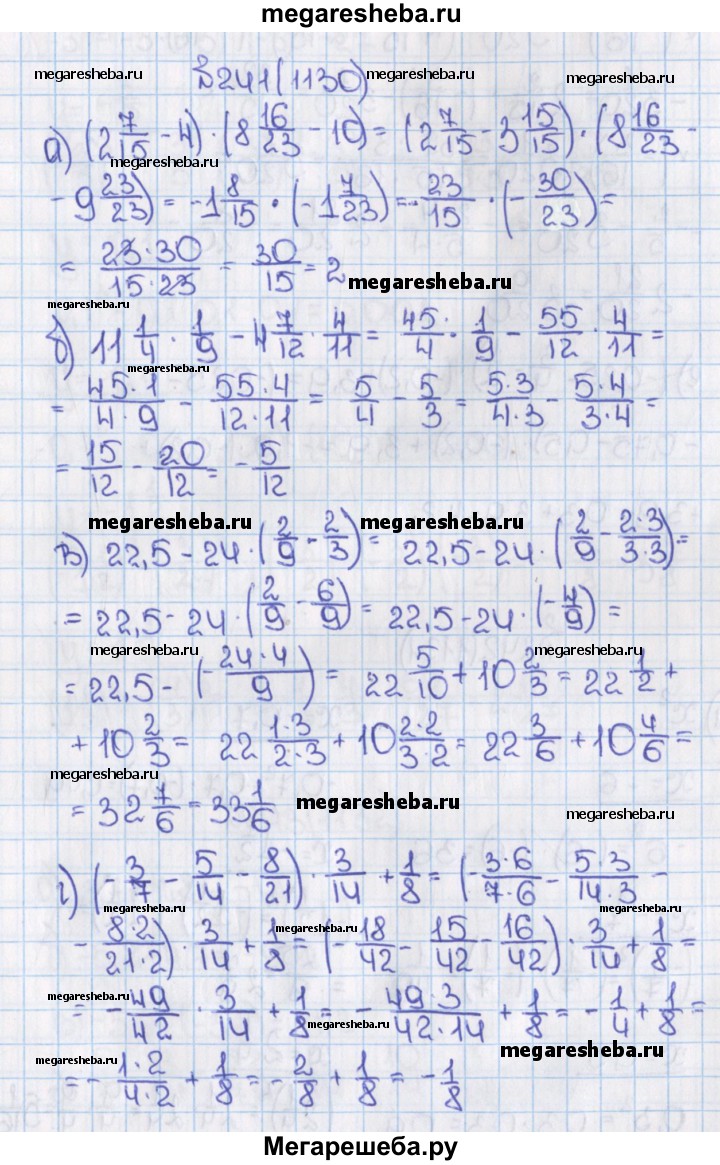 megaresheba.ru
№241(1130)
megaresheba.ru megaresheba.ru megaresheba.ru
а) (2 7/15 - 4) · (8 16/23 - 10) = (2 7/15 - 3 15/15) · (8 16/23 -
megaresheba.ru
- 9 23/23) = -1 8/15 · (-1 7/23) = - 23/15 · (- 30/23) =
= 23·30/15·23 = 30/15 = 2
megaresheba.ru
megaresheba.ru
б) 11 1/4 · 1/9 - 4 7/12 · 4/11 = 45/4 · 1/9 - 55/12 · 4/11 =
megaresheba.ru
= 45·1/4·9 - 55·4/12·11 = 5/4 - 5/3 = 5·3/4·3 - 5·4/3·4 =
= 15/12 - 20/12 = - 5/12
megaresheba.ru megaresheba.ru
в) 22,5 - 24 · (2/9 - 2/3) = 22,5 - 24 · (2/9 - 2·3/3·3) =
= 22,5 - 24 · (2/9 - 6/9) = 22,5 - 24 · (- 4/9) =
megaresheba.ru megaresheba.ru
= 22,5 - (- 24·4/9) = 22 5/10 + 10 2/3 = 22 1/2 +
+ 10 2/3 = 22 1·3/2·3 + 10 2·2/3·2 = 22 3/6 + 10 4/6 =
megaresheba.ru
= 32 7/6 = 33 1/6
megaresheba.ru megaresheba.ru
г) (- 3/7 - 5/14 - 8/21) · 3/14 + 1/8 = (- 3·6/7·6 - 5·3/14·3 -
megaresheba.ru megaresheba.ru
- 8·2/21·2) · 3/14 + 1/8 = (- 18/42 - 15/42 - 16/42) · 3/14 + 1/8 =
megaresheba.ru
= - 49/42 · 3/14 + 1/8 = - 49·3/42·14 + 1/8 = - 1/4 + 1/8 =
megaresheba.ru megaresheba.ru
megaresheba.ru
= - 1·2/4·2 + 1/8 = - 2/8 + 1/8 = - 1/8
Мегарешеба.ру